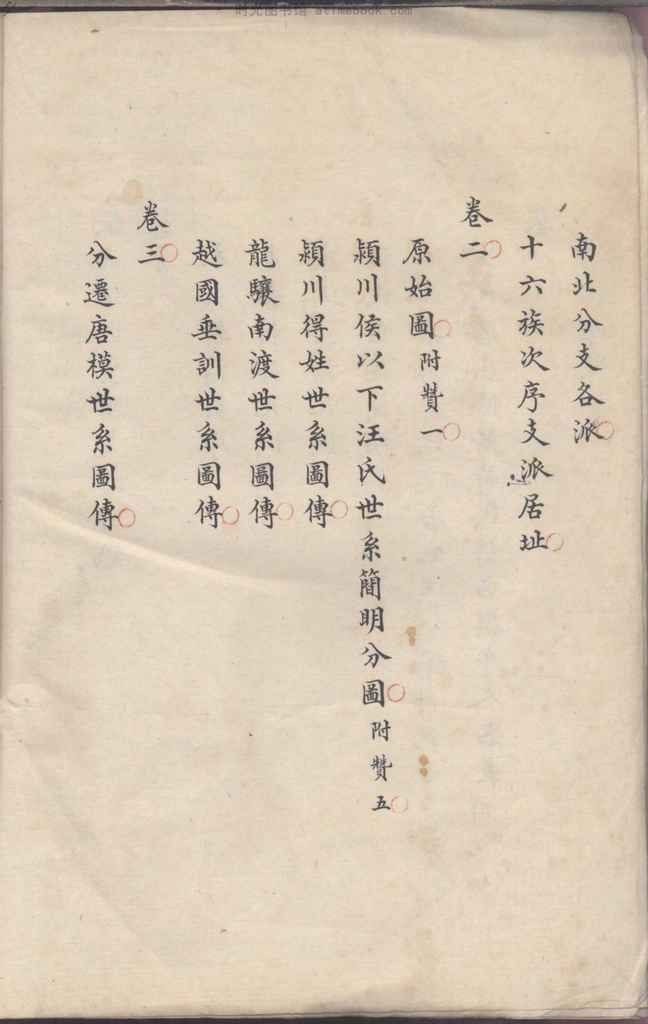 时光图书馆 atimebook.com
南北分支各派
十六族次序支派居址
卷二
原始圖附贊一
潁川侯以下汪氏世系簡明分圖附贊五
潁川得姓世系圖傳
龍驤南渡世系圖傳
越國垂訓世系圖傳
卷三
分遷唐模世系圖傳